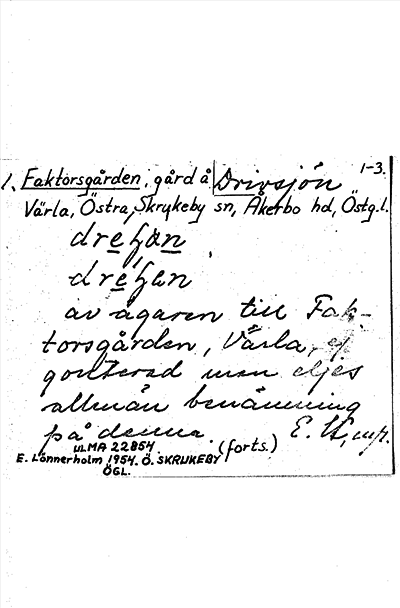 1-3.
1. Faktorsgården, gård å Drivsjön
Värla, Östra Skrukeby sn, Åkerbo hd, Östg.l.
av ägaren till Fak-
torsgården, Värla, ej
godterad men eljes
allmän benämning
på denna. E. H, mp.
(forts.)
ULMA 22854
E. Lönnerholm 1954. Ö. SKRUKEBY
ÖGL.